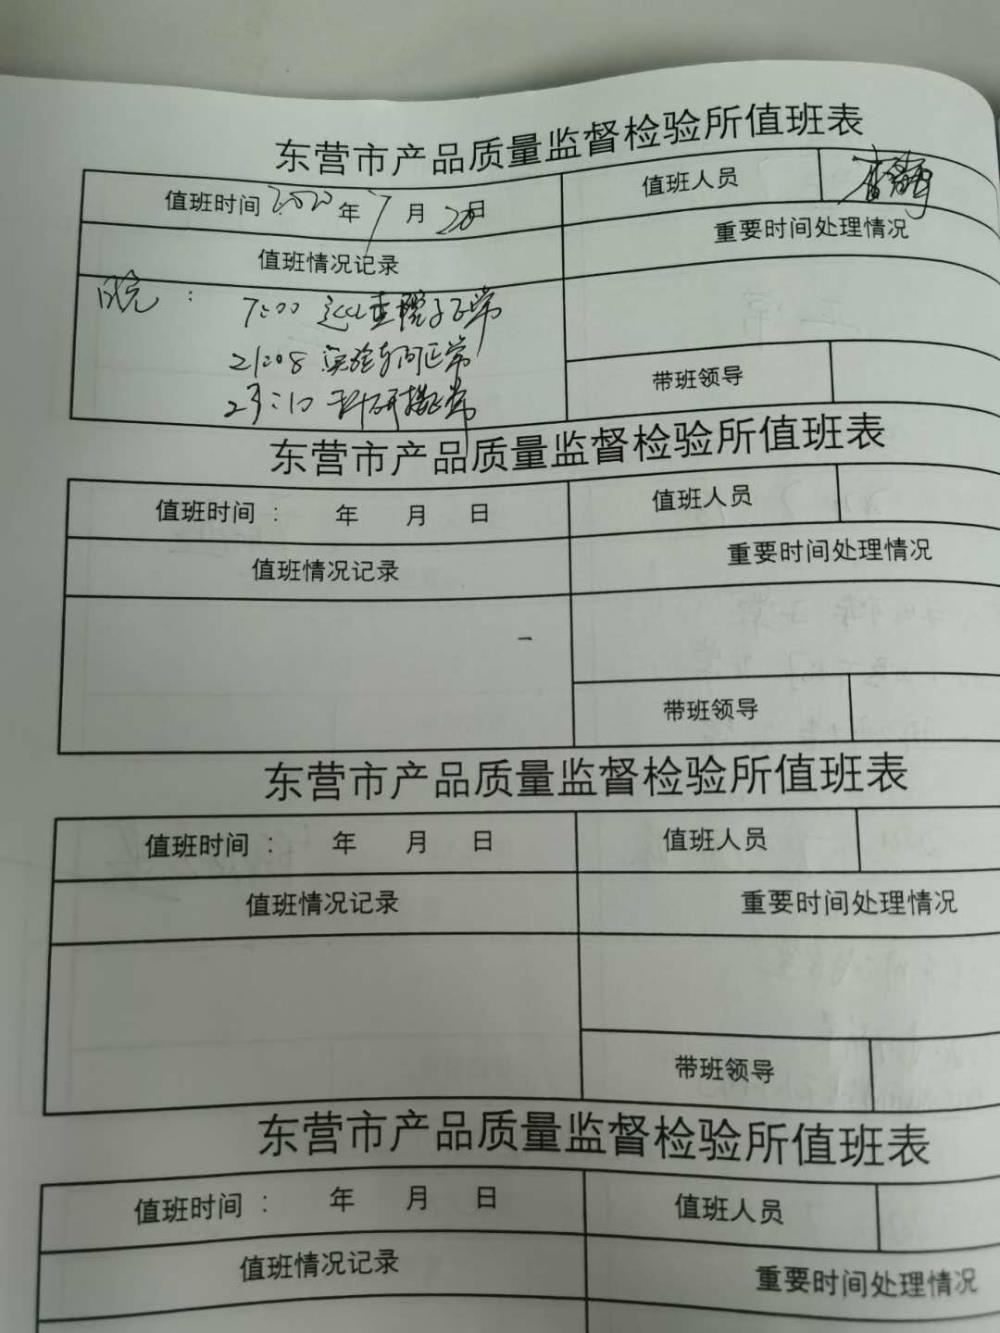 东营市产品质量监督检验所值班表
值班时间 2020 年 7 月 20 日 值班人员
值班情况记录 重要时间处理情况
7:00 巡查院子正常
21:08 实验车间正常
23:10 科研楼正常
带班领导
东营市产品质量监督检验所值班表
值班时间： 年 月 日 值班人员
值班情况记录 重要时间处理情况
带班领导
东营市产品质量监督检验所值班表
值班时间： 年 月 日 值班人员
值班情况记录 重要时间处理情况
带班领导
东营市产品质量监督检验所值班表
值班时间： 年 月 日 值班人员
值班情况记录 重要时间处理情况